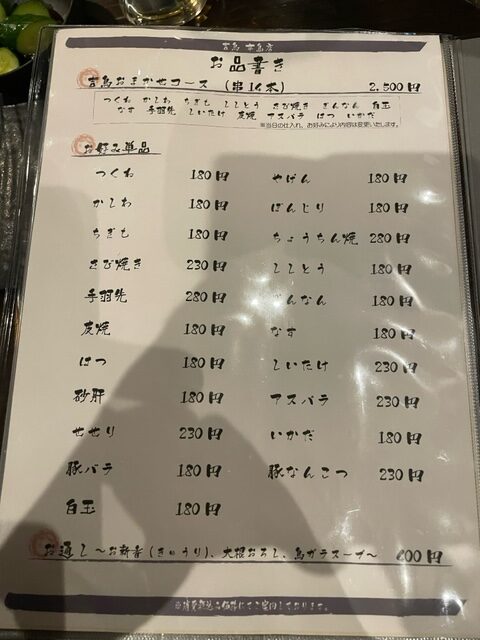 吉鳥 本店
お品書き
吉鳥おまかせコース (串14本) 2,500円
つくね かしわ ちぎも ししとう さび焼き ぎんなん 白玉
なす 手羽先 しいたけ 炭焼 アスパラ はつ いかだ
※当日の仕入れ、お好みにより内容は変更いたします。
お好み単品
つくね 180円 やげん 180円
かしわ 180円 ぼんじり 180円
ちぎも 180円 ちょうちん焼 280円
さび焼き 230円 ししとう 180円
手羽先 280円 ぎんなん 180円
炭焼 180円 なす 180円
はつ 180円 しいたけ 230円
砂肝 180円 アスパラ 230円
せせり 230円 いかだ 180円
豚バラ 180円 豚なんこつ 230円
白玉 180円
お通し～お新香(きゅうり)、大根おろし、鳥ガラスープ～ 600円
※消費税込の価格にてご案内しております。